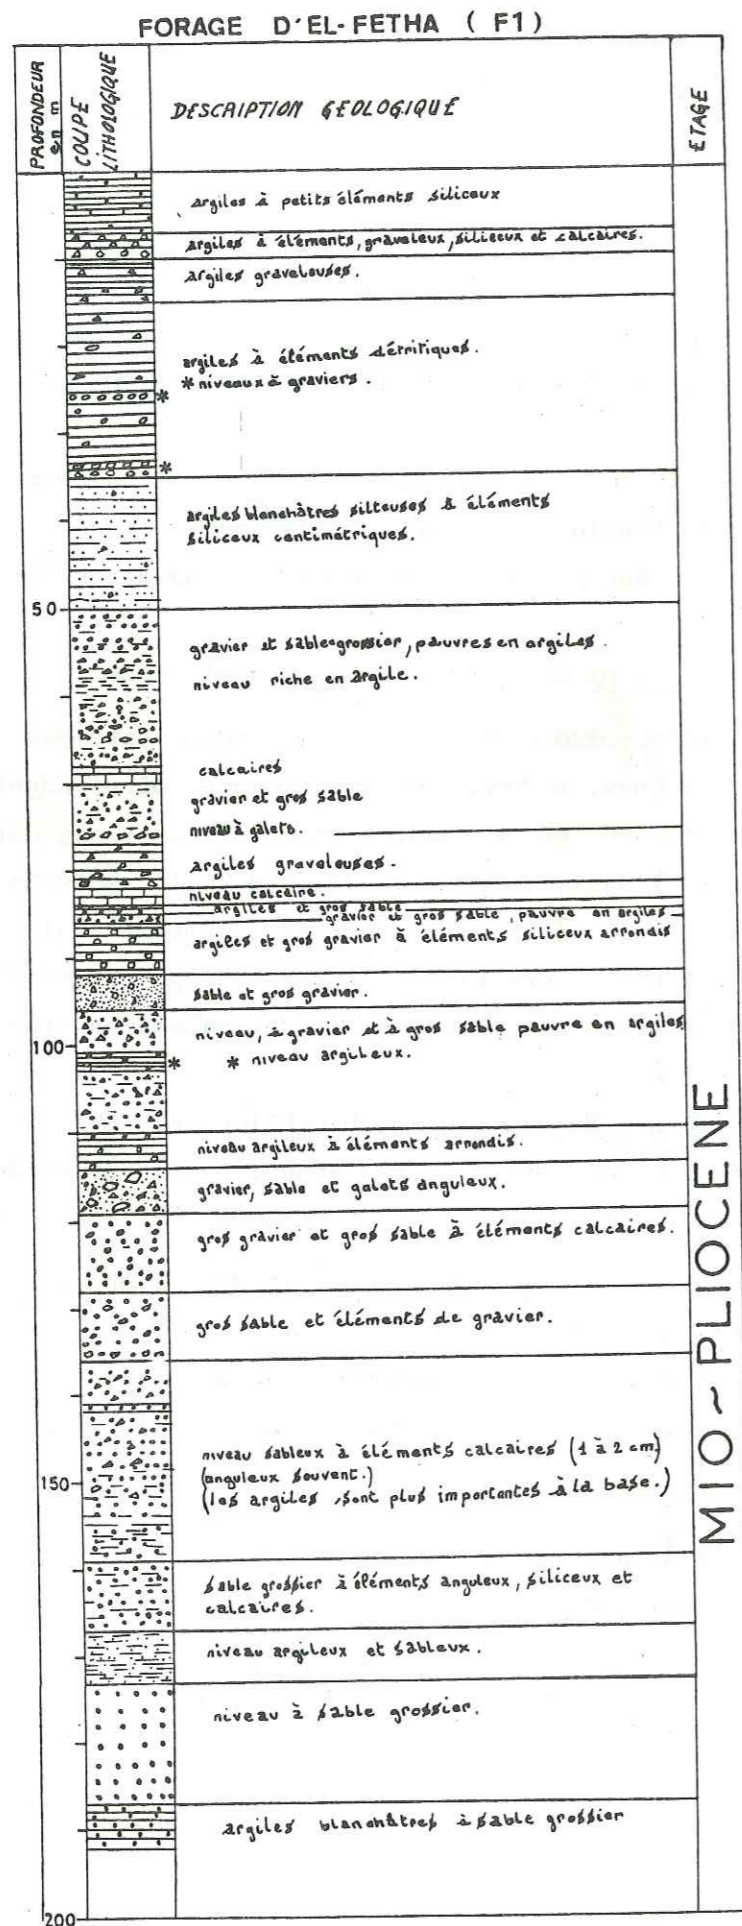 FORAGE D'EL-FETHA ( F1 )
PROFONDEUR
en m
COUPE
LITHOLOGIQUE
DESCRIPTION GEOLOGIQUE
ETAGE
argiles à petits éléments siliceux
argiles à éléments, graveleux, siliceux et calcaires.
argiles graveleuses.
argiles à éléments détritiques.
* niveaux à graviers.
*
*
argiles blanchâtres silteuses à éléments
siliceux centimétriques.
50
gravier et sable grossier, pauvres en argiles.
niveau riche en argile.
calcaires
gravier et gros sable
niveau à galets.
argiles graveleuses.
niveau calcaire.
argiles et gros sable
gravier et gros sable, pauvre en argiles
argiles et gros gravier à éléments siliceux arrondis
sable et gros gravier.
niveau, à gravier et à gros sable pauvre en argiles
100
* * niveau argileux.
niveau argileux à éléments arrondis.
gravier, sable et galets anguleux.
gros gravier et gros sable à éléments calcaires.
gros sable et éléments de gravier.
MIO ~ PLIOCENE
niveau sableux à éléments calcaires (1 à 2 cm)
(anguleux souvent.)
150
(les argiles sont plus importantes à la base.)
sable grossier à éléments anguleux, siliceux et
calcaires.
niveau argileux et sableux.
niveau à sable grossier.
argiles blanchâtres à sable grossier
200